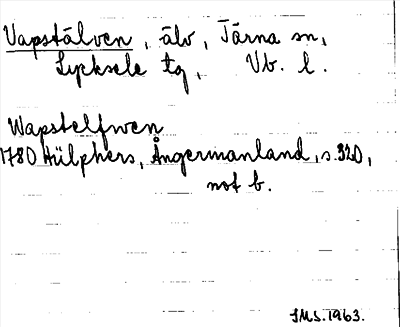 Vapstälven, älv, Tärna sn,
Lycksele tg, Vb. l.
Wapstelfwen
1780 Hülphers, Ångermanland, s. 320,
not b.
JMS. 1963.